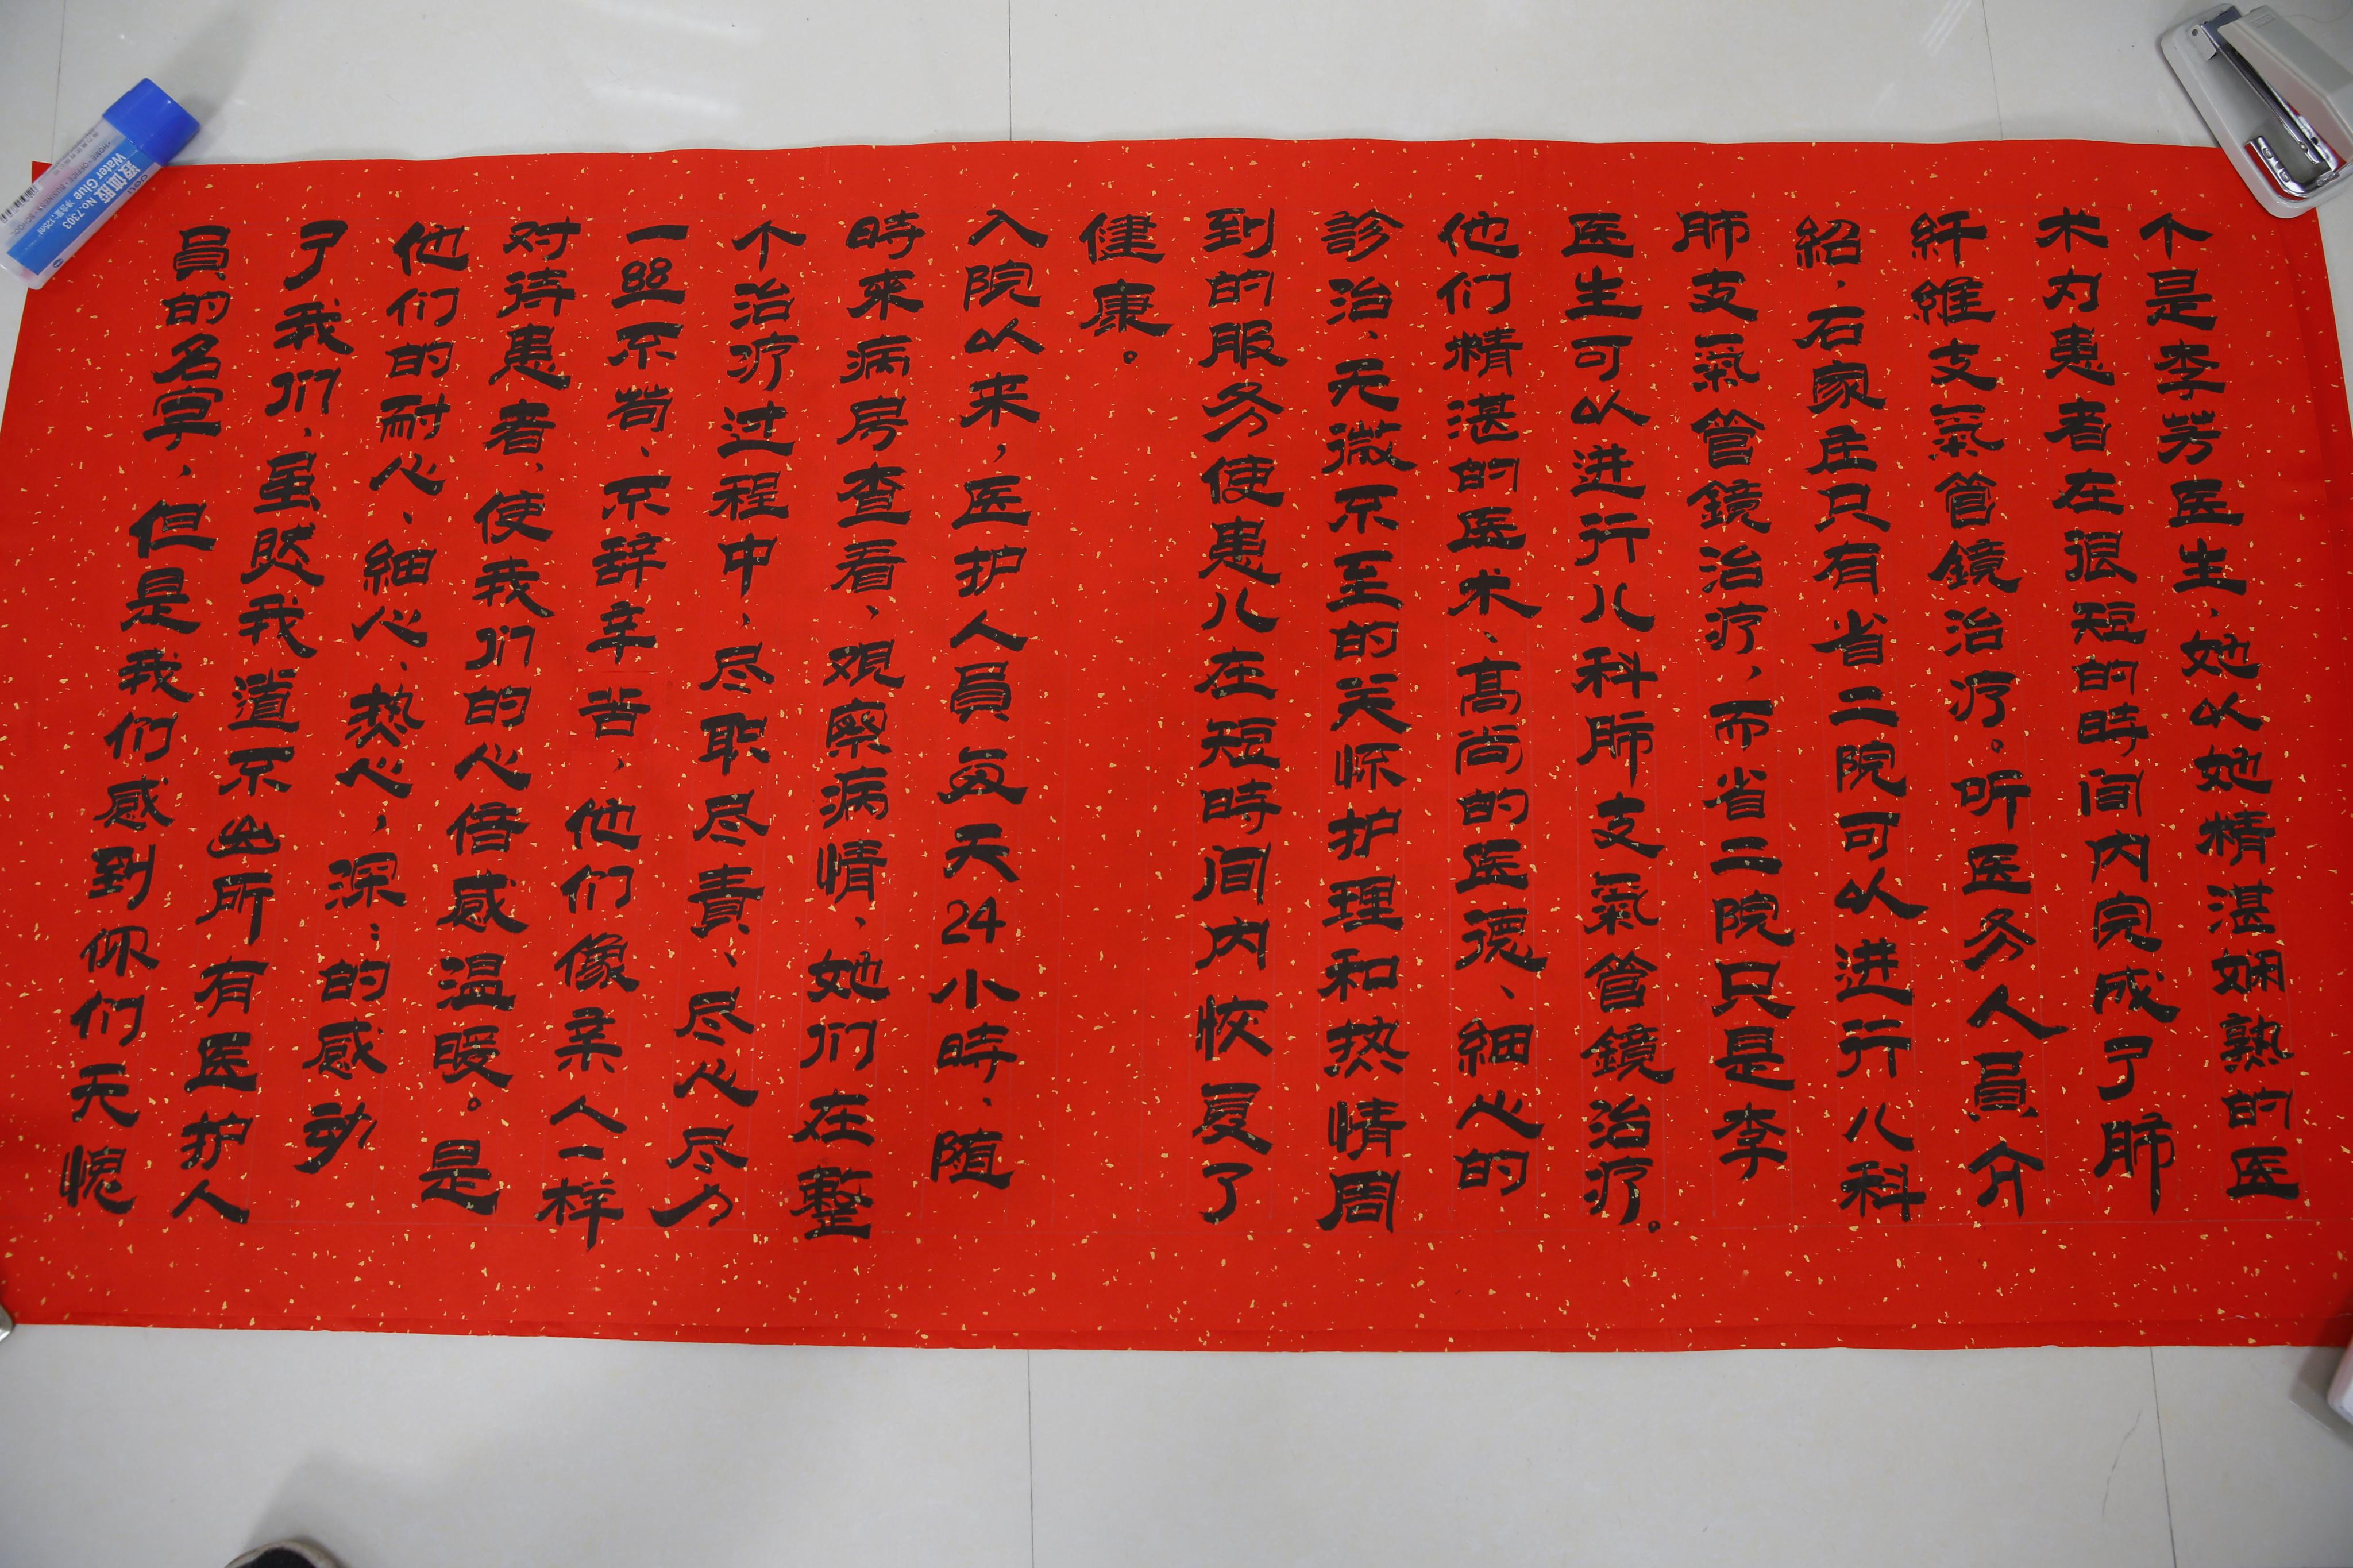 个是李芳医生，她以她精湛娴熟的医
术为患者在很短的時间内完成了肺
纤維支氣管鏡治疗。听医务人員介
紹，石家庄只有省二院可以进行儿科
肺支氣管鏡治疗，而省二院只是李
医生可以进行儿科肺支氣管鏡治疗。
他们精湛的医术、高尚的医德、細心的
診治、无微不至的关怀护理和热情周
到的服务使患儿在短時间内恢复了
健康。
入院以来，医护人員每天24小時、随
時来病房查看、观察病情、她们在整
个治疗过程中，尽职尽責、尽心尽力
一丝不苟、不辞辛苦，他们像亲人一样
对待患者、使我们的心倍感温暖。是
他们的耐心、細心、热心，深：的感动
了我们，虽然我道不出所有医护人
員的名字，但是我们感到你们无愧
液体胶
Water Glue No.7303
净含量:125ml
deli